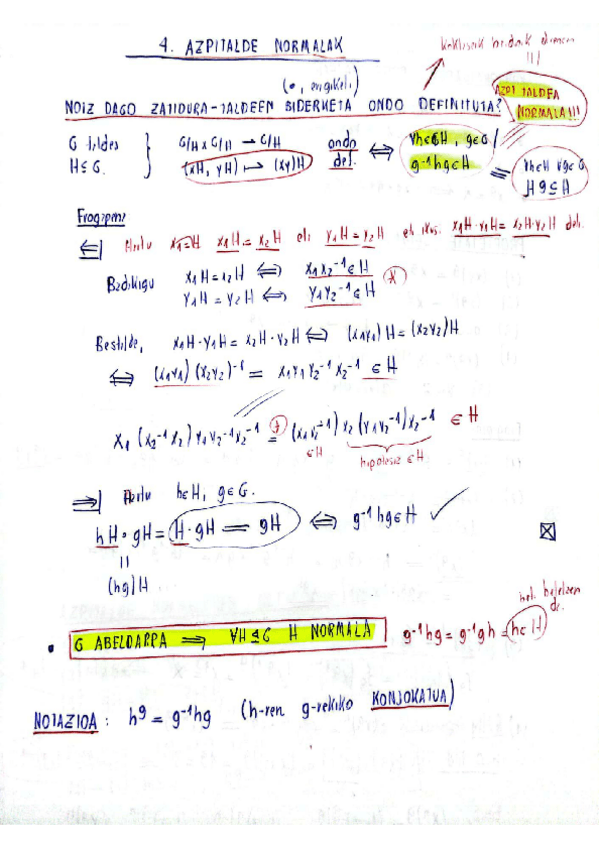 4. AZPITALDE NORMALAK
(•, engikeli)
NOIZ DAGO ZATIDURA-TALDEEN BIDERKETA ONDO DEFINITUTA?
AZPITALDEA
NORMALA!!!
G taldea
H ≤ G.
G/H x G/H → G/H
(xH, yH) ↦ (xy)H
ondo
def.
⟺
∀h∈H, g∈G /
g⁻¹hg∈H
=
∀h∈H ∀g∈G
H^g ⊆ H
Frogapena
⟸| Hartu x₁=H x₁H = x₂H eta y₁H = y₂H eta ikus. x₁H·y₁H = x₂H·y₂H den.
Badakigu x₁H = x₂H ⟺ x₁x₂⁻¹∈H (*)
y₁H = y₂H ⟺ y₁y₂⁻¹∈H
Bestalde, x₁H·y₁H = x₂H·y₂H ⟺ (x₁y₁)H = (x₂y₂)H
⟺ (x₁y₁)(x₂y₂)⁻¹ = x₁y₁y₂⁻¹x₂⁻¹ ∈ H
x₁(x₂⁻¹x₂)y₁y₂⁻¹x₂⁻¹ = (x₁x₂⁻¹) x₂(y₁y₂⁻¹)x₂⁻¹ ∈ H
∈H hipotesiz ∈H
⟹| Hartu h∈H, g∈G.
hH•gH = H·gH = gH ⟺ g⁻¹hg∈H ✓
=
(hg)H
• G ABELDARRA ⟹ ∀H≤G H NORMALA g⁻¹hg = g⁻¹gh = h∈H
bet. betetzen
da.
NOTAZIOA: h^g = g⁻¹hg (h-ren g-rekiko KONJOKATUA)